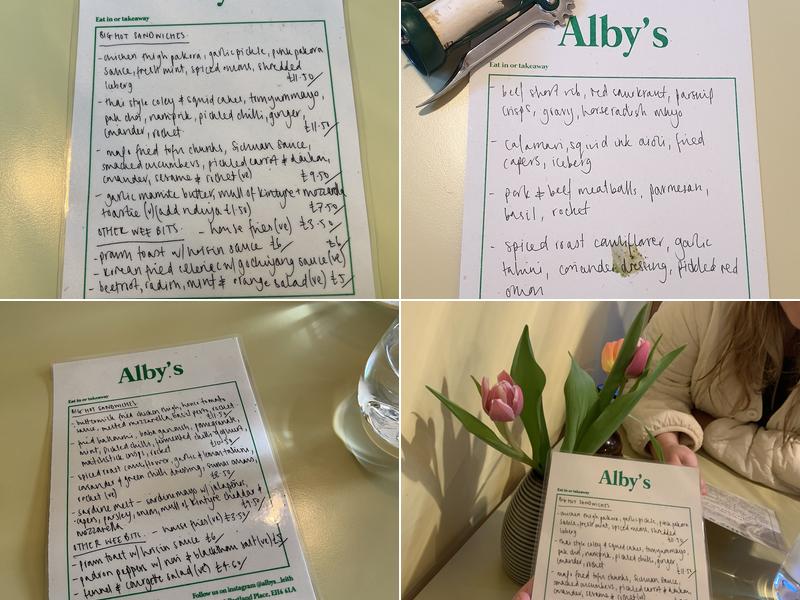 Eat in or takeaway
BIG HOT SANDWICHES.
- chicken thigh pakora, garlic pickle, pink pakora
sauce, fresh mint, spiced onions, shredded
iceberg £11.50/
- thai style coley & squid cakes, tom yum mayo,
pak choi, nam prik, pickled chilli, ginger,
coriander, rocket. £11.50/
- mapo fried tofu chunks, Sichuan sauce,
smashed cucumbers, pickled carrot & daikon,
coriander, sesame & rocket (ve) £9.50/
- garlic marmite butter, mull of kintyre + mozzarella
toastie (v)(add nduja £1.50) £7.50
OTHER WEE BITS. - house fries (ve) £3.50/
- prawn toast w/ hoisin sauce £6/
- korean fried celeriac w/ gochujang sauce (ve) £6/
- beetroot, radish, mint & orange salad (ve) £5/
Alby's
Eat in or takeaway
- beef short rib, red sauerkraut, parsnip
crisps, gravy, horseradish mayo
- calamari, squid ink aioli, fried
capers, iceberg
- pork & beef meatballs, parmesan,
basil, rocket
- spiced roast cauliflower, garlic
tahini, coriander dressing, pickled red
onion
Alby's
Eat in or takeaway
BIG HOT SANDWICHES.
- buttermilk fried chicken thigh, tomato
sauce, melted mozzarella, basil pesto, rocket
£11.50/
- fried halloumi, baba ganoush, pomegranate,
mint, pickled chilli, fermented chilli + honey,
matchstick crisps, rocket £10.50/
spiced roast cauliflower, garlic + lemon tahini,
coriander + green chilli dressing, sumac onions,
rocket (ve) £8.50/
- sardine melt - sardine mayo w/ jalapeños,
capers, parsley, onion, mull of kintyre cheddar &
mozzarella £9.50/
OTHER WEE BITS. - house fries (ve) £3.50/
- prawn toast w/ hoisin sauce £6/
- padron peppers w/ + blackthorn salt (ve) £5/
- fennel & courgette salad (ve) £4.50/
Follow us on instagram @albys_leith
Portland Place, EH6 6LA
Alby's
Eat in or takeaway
BIG HOT SANDWICHES.
- chicken thigh pakora, garlic pickle, pink pakora
sauce, fresh mint, spiced onions, shredded
iceberg £11.50/
- thai style coley & squid cakes, tom yum mayo,
pak choi, nam prik, pickled chilli, ginger,
coriander, rocket. £11.50/
- mapo fried tofu chunks, Sichuan sauce,
smashed cucumbers, pickled carrot & daikon,
coriander, sesame & rocket (ve)